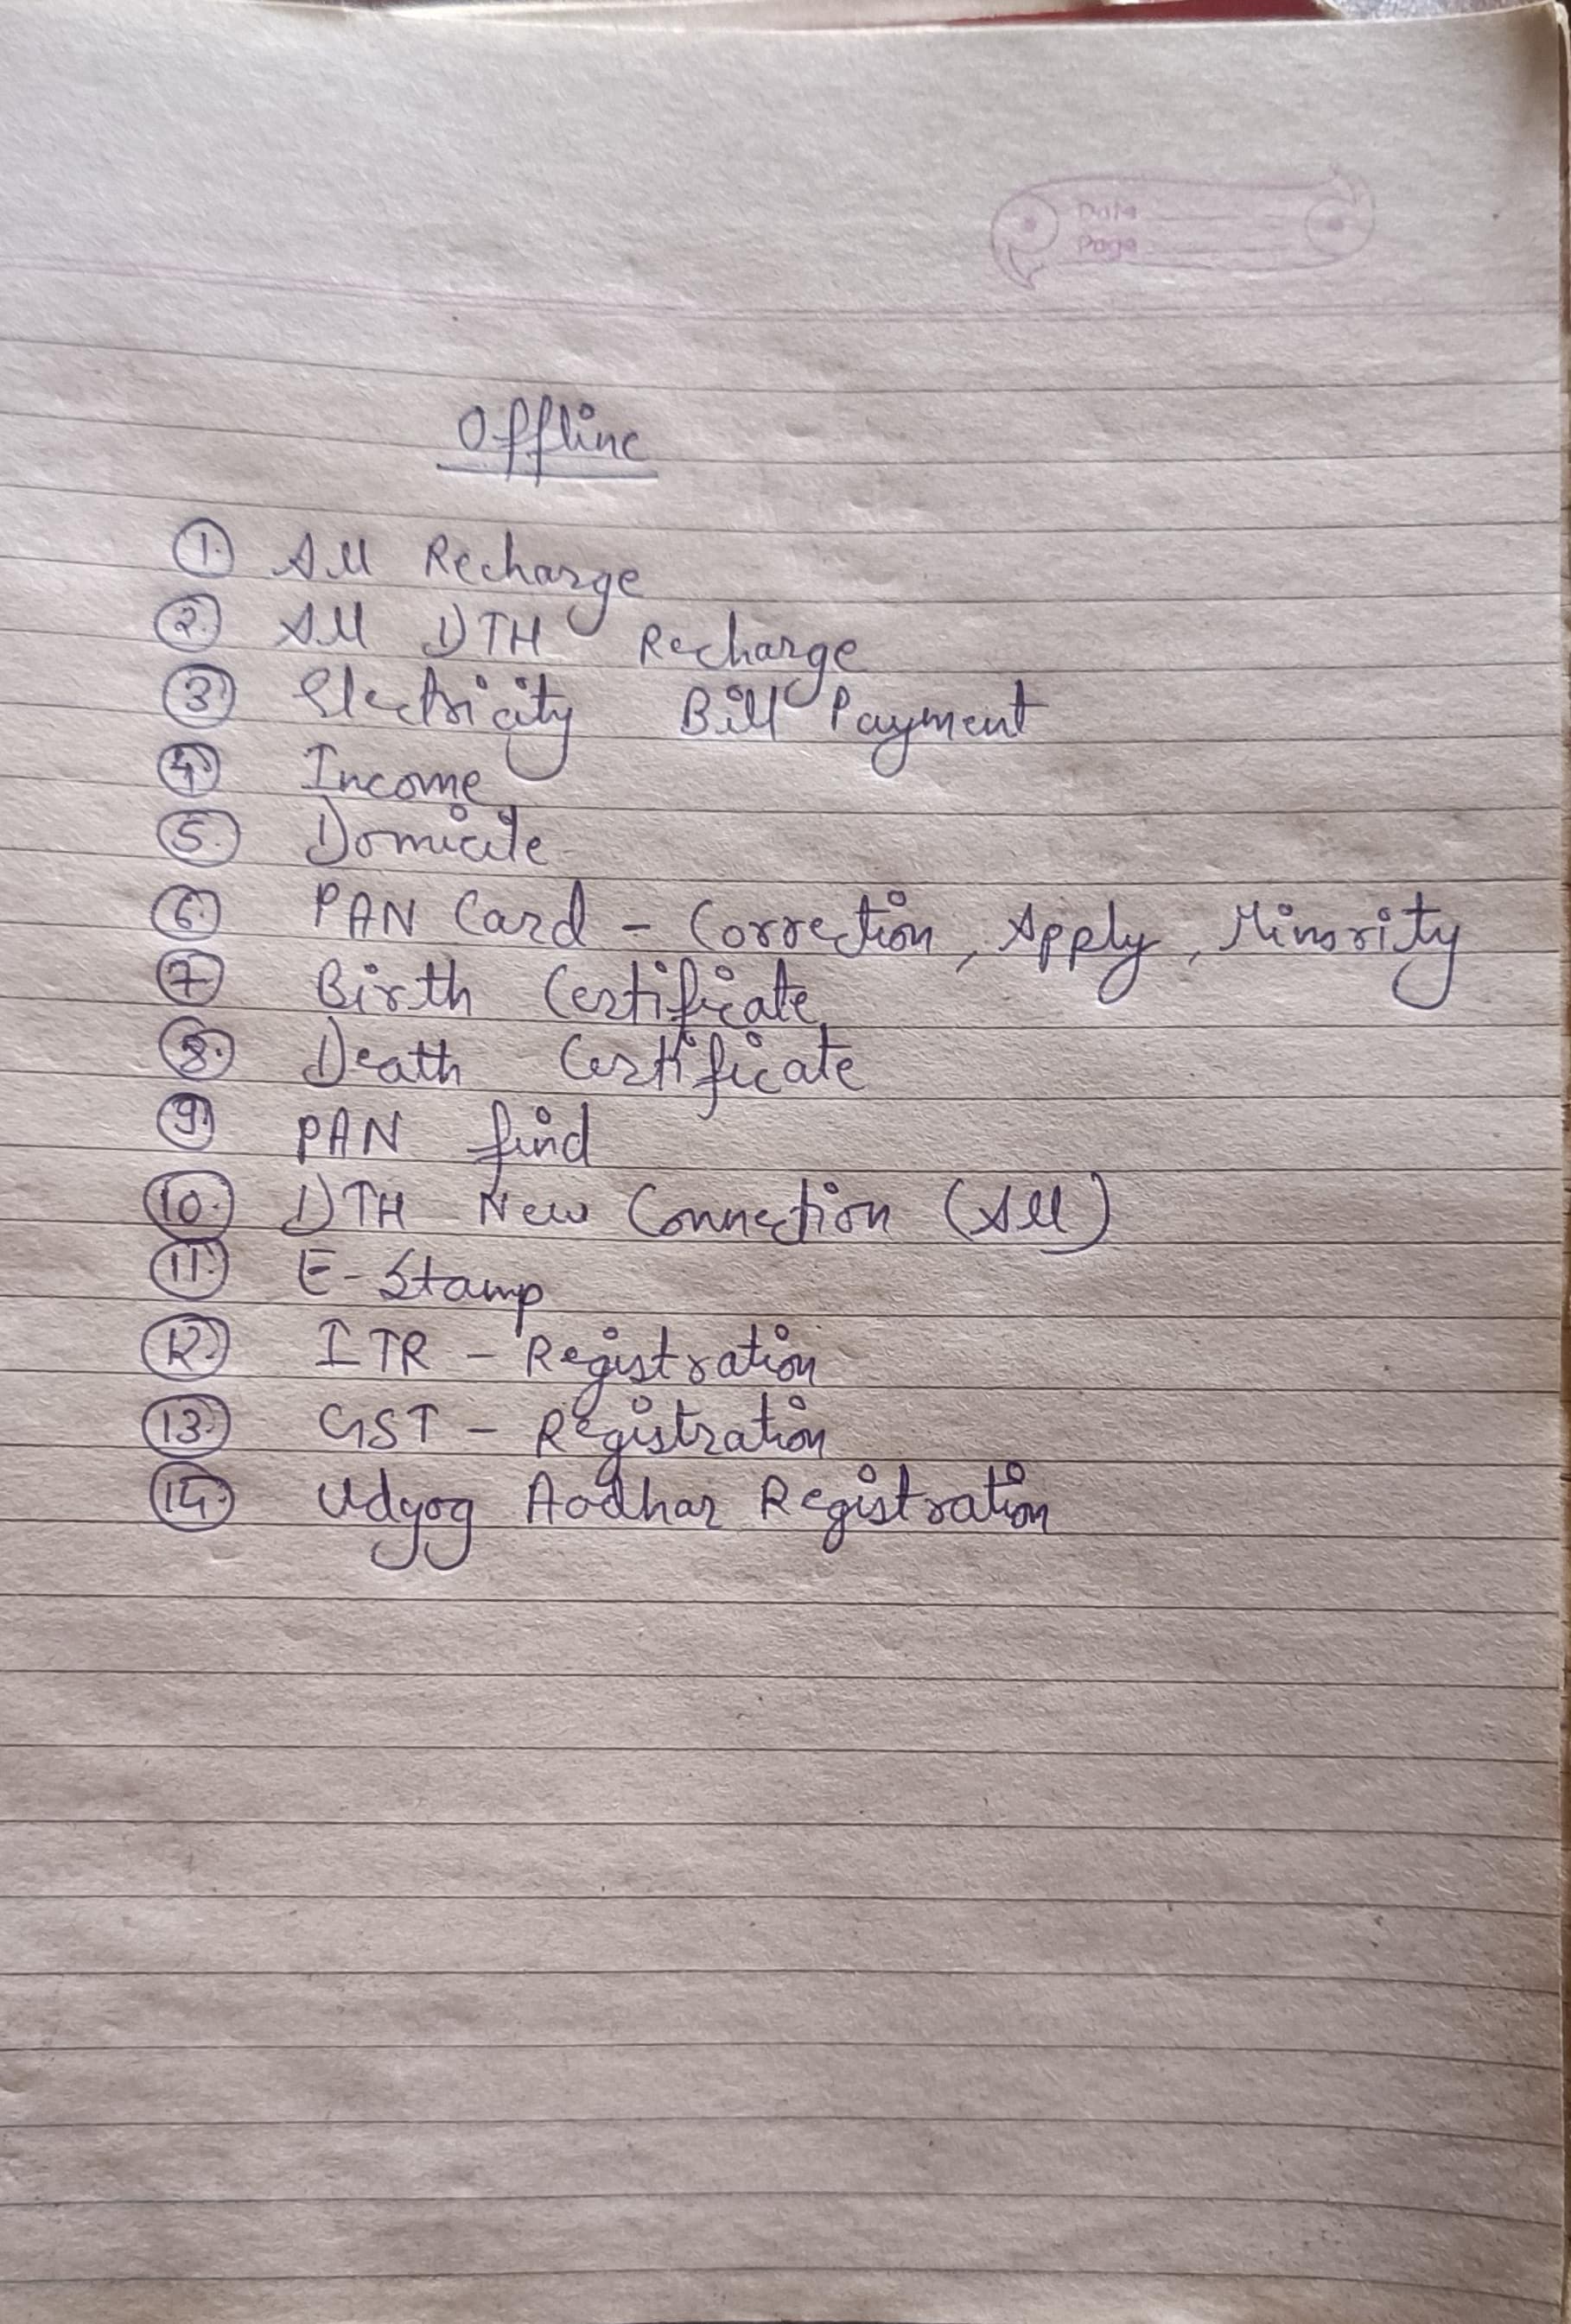 Date
Page
Offline
1. All Recharge
2. All DTH Recharge
3. Electricity Bill Payment
4. Income
5. Domicile
6. PAN Card - Correction, Apply, Minority
7. Birth Certificate
8. Death Certificate
9. PAN find
10. DTH New Connection (All)
11. E-Stamp
12. ITR - Registration
13. GST - Registration
14. Udyog Aadhar Registration